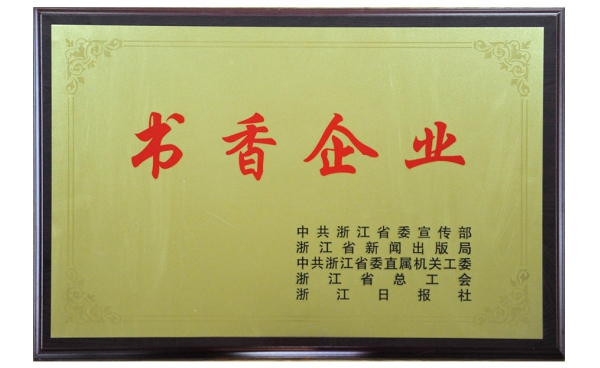 书香企业
中共浙江省委宣传部
浙江省新闻出版局
中共浙江省委直属机关工委
浙江省总工会
浙江日报社